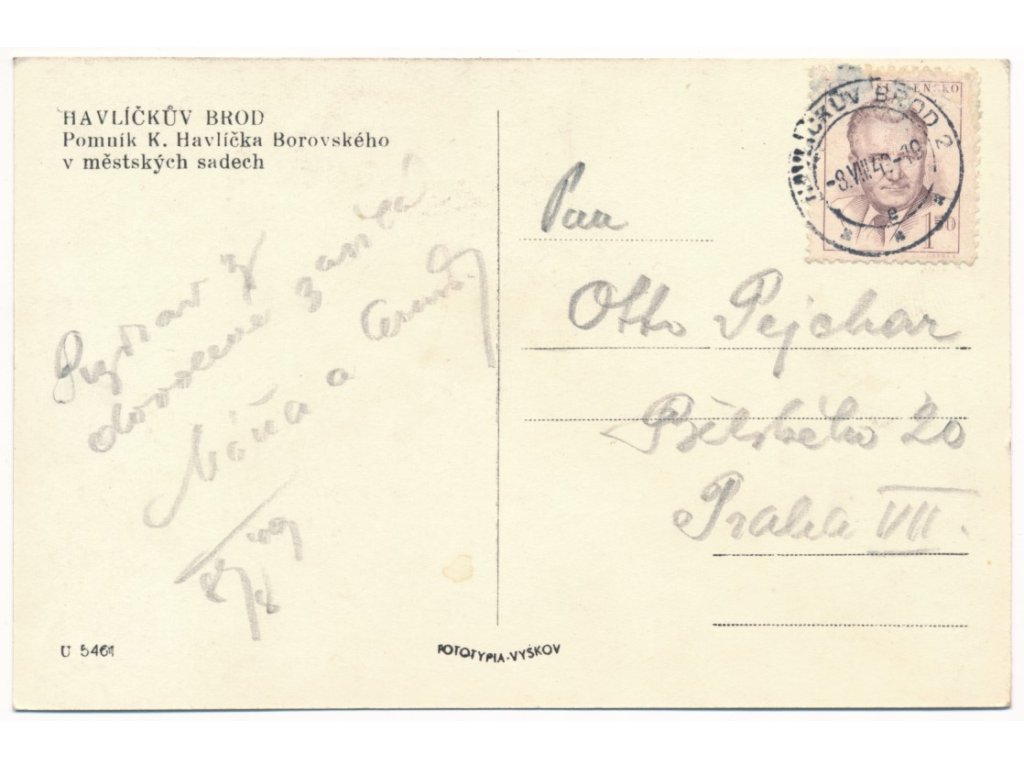 HAVLÍČKŮV BROD
Pomník K. Havlíčka Borovského
v městských sadech
Pozdrav z
dovolené
Máňa a
8/8 49
U 5461
FOTOTYPIA-VYŠKOV
HAVLÍČKŮV BROD 2
-8.VIII.49-18
e
1.50
Pan
Otto Pejchar
Bělského 20
Praha VII.